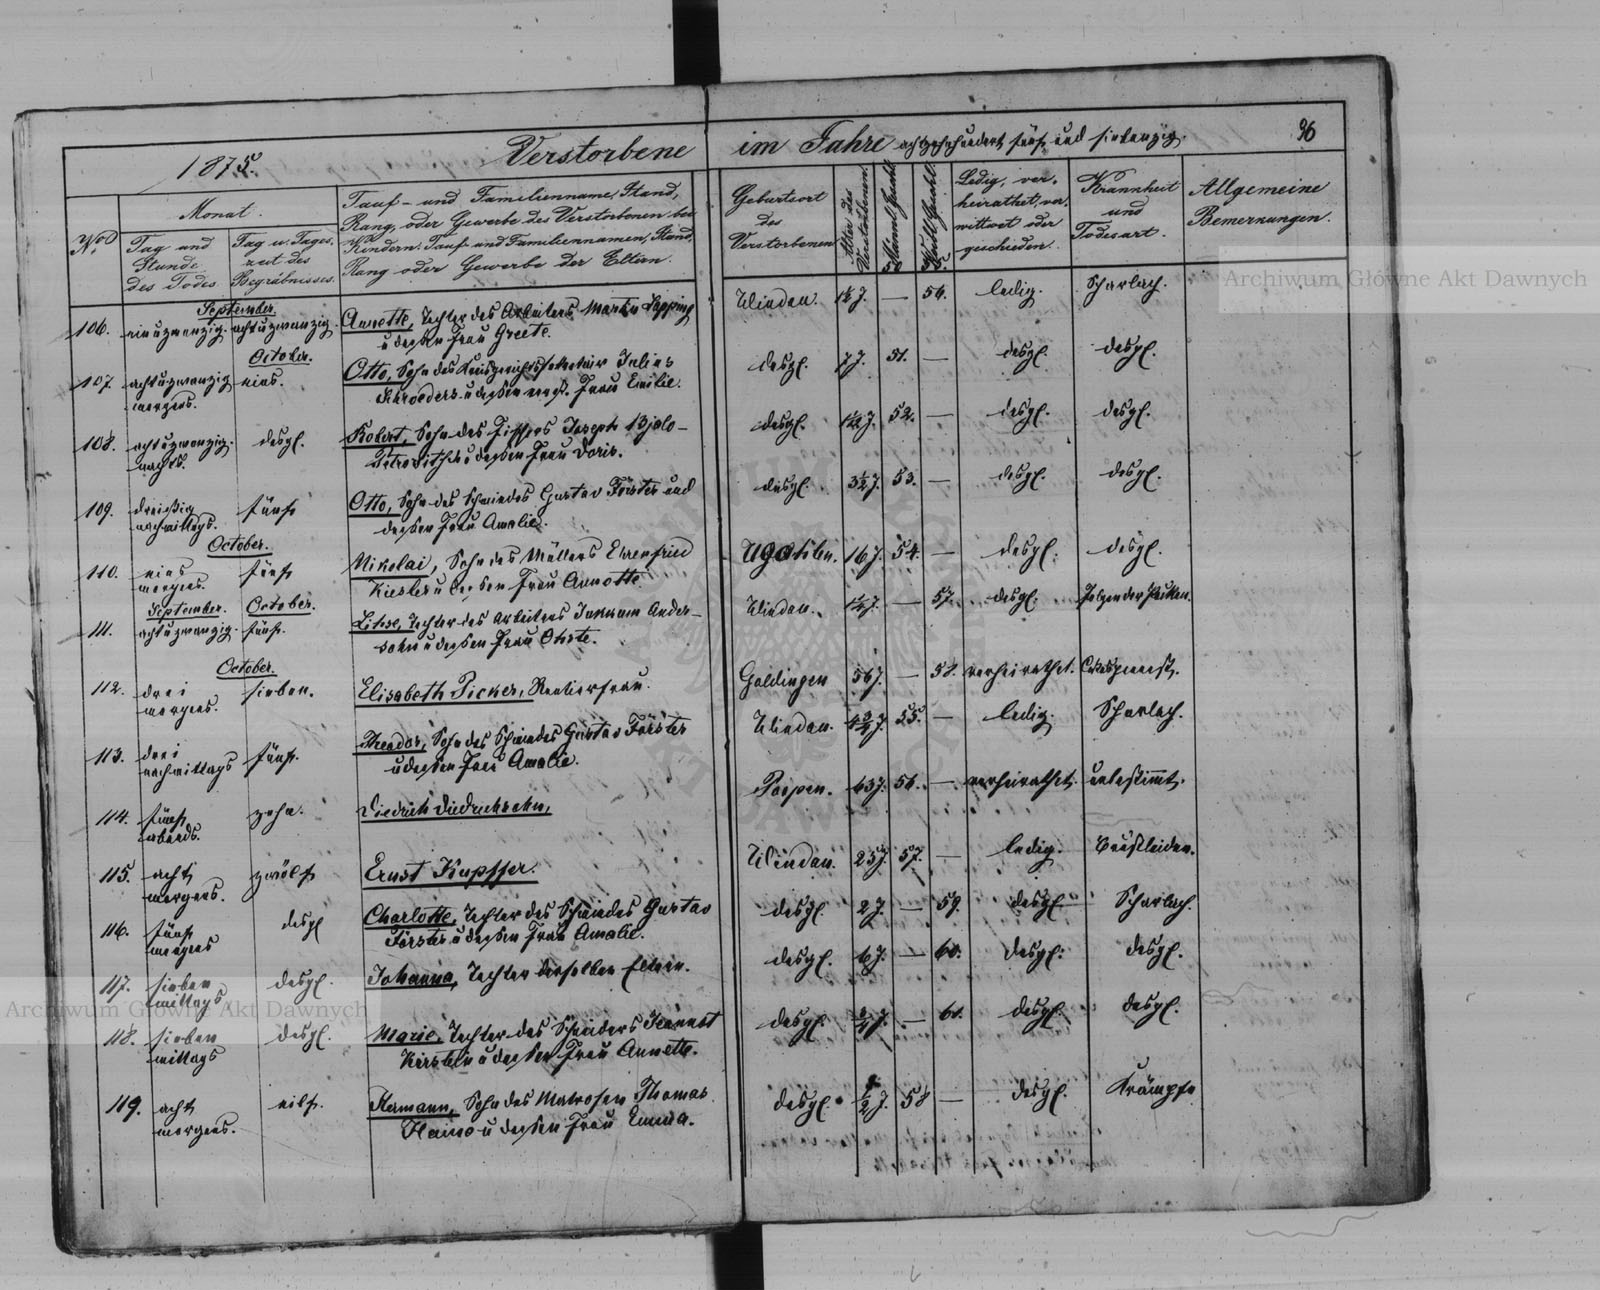 1875. Verstorbene im Jahre achtzehnhundert fünf und siebenzig. 96
No.
Monat.
Tag und Stunde des Todes
Tag u. Tageszeit des Begräbnisses.
Tauf- und Familienname, Stand,
Rang, oder Gewerbe des Verstorbenen bei
Kindern: Tauf- und Familiennamen, Stand,
Rang oder Gewerbe der Eltern.
Geburtsort des Verstorbenen
Alter des Verstorbenen.
Männl. Geschl.
Weibl. Geschl.
Ledig, verheirathet, verwittwet oder geschieden.
Krankheit und Todesart.
Allgemeine Bemerkungen.
September.
106. einuzwanzig. achtuzwanzig. Annette, Tochter des Arbeiters Martin Lapping Windau. 1½ J. — 56. ledig. Scharlach.
u dessen Frau Greete.
October.
107. achtuzwanzig eins. Otto, Sohn des Julius desgl. 7 J. 51. — desgl. desgl.
morgens. Schroeders u dessen Frau Emilie.
108. achtuzwanzig. desgl. Robert, Sohn des Joseph Bjalo- desgl. 52. — desgl. desgl.
nachts. u dessen Frau Doris.
109. dreißig fünf Otto, Sohn des Schmiedes Gustav Förster und desgl. 3½ J. 53. — desgl. desgl.
nachmittags. dessen Frau Amalie.
October.
110. eins fünf Nikolai, Sohn des Müllers Ehrenfried 16 J. 54. — desgl. desgl.
morgens. u dessen Frau Annette.
September. October.
111. achtuzwanzig. fünf. Lihse, Tochter des Arbeiters Jannkum Ander- Windau. — 57. desgl. Folgen der Pocken.
sohn u dessen Frau Ohste.
October.
112. drei sieben. Elisabeth Picker, Rentierfrau. Goldingen 56 J. — 58. verheirathet.
morgens.
113. drei fünf. Theodor, Sohn des Schmiedes Gustav Förster Windau. 4¾ J. 55. — ledig. Scharlach.
nachmittags u dessen Frau Amalie.
114. fünf zehn. Diedrich Diedrichsohn, Poopen. 63 J. 56. — verheirathet. unbestimmt.
abends.
115. acht zwölf Ernst Kupffer. Windau. 25 J. 57. — ledig. Brustleiden.
morgens.
116. fünf desgl Charlotte, Tochter des Schmiedes Gustav desgl. 2 J. — 59. desgl Scharlach.
morgens Förster u dessen Frau Amalie.
117. sieben desgl. Johanna, Tochter derselben Eltern. desgl. 6 J. — 60. desgl. desgl.
mittags
118. sieben desgl. Marie, Tochter des Schneiders Jeannot desgl. ¾ J. — 61. desgl. desgl.
mittags Kirstein u dessen Frau Annette.
119. acht eilf. Hermann, Sohn des Matrosen Thomas desgl. ½ J. 58 — desgl. Krämpfe
morgens. u dessen Frau Emma.
Archiwum Główne Akt Dawnych
Archiwum Główne Akt Dawnych